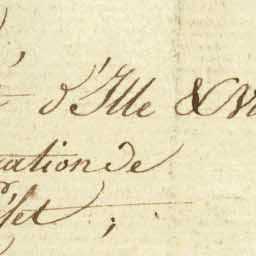 d'Ille & Vi
ation de
set ;